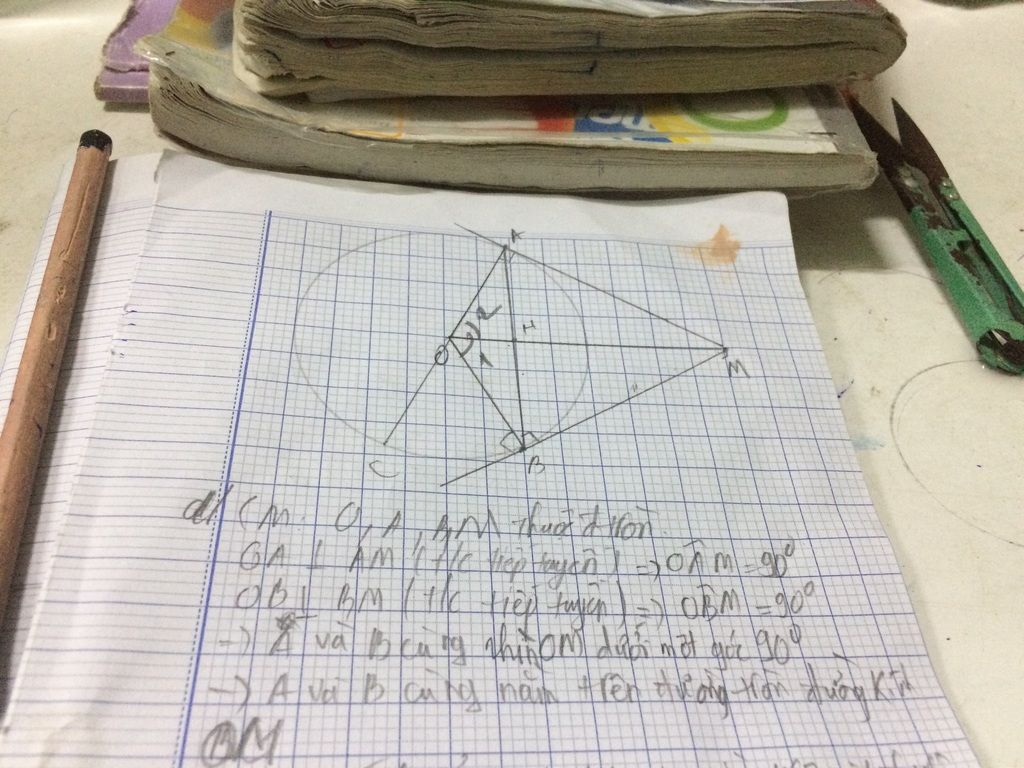 A
2
H
O
1
M
C
B
a/ CM: O, A, B, M thuộc đ tròn
OA ⊥ AM (t/c tiếp tuyến) => OÂM = 90⁰
OB ⊥ BM (t/c tiếp tuyến) => OBM = 90⁰
-> A và B cùng nhìn OM dưới một góc 90⁰
-> A và B cùng nằm trên đường tròn đường kính
OM